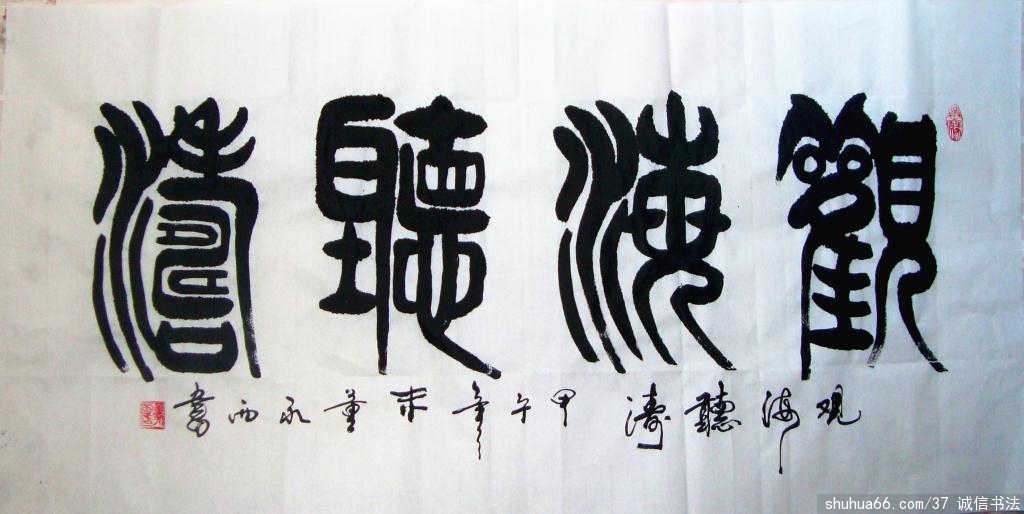 觀海聽濤
观海聽濤 甲午年 董永西書
shuhua66.com/37 诚信书法